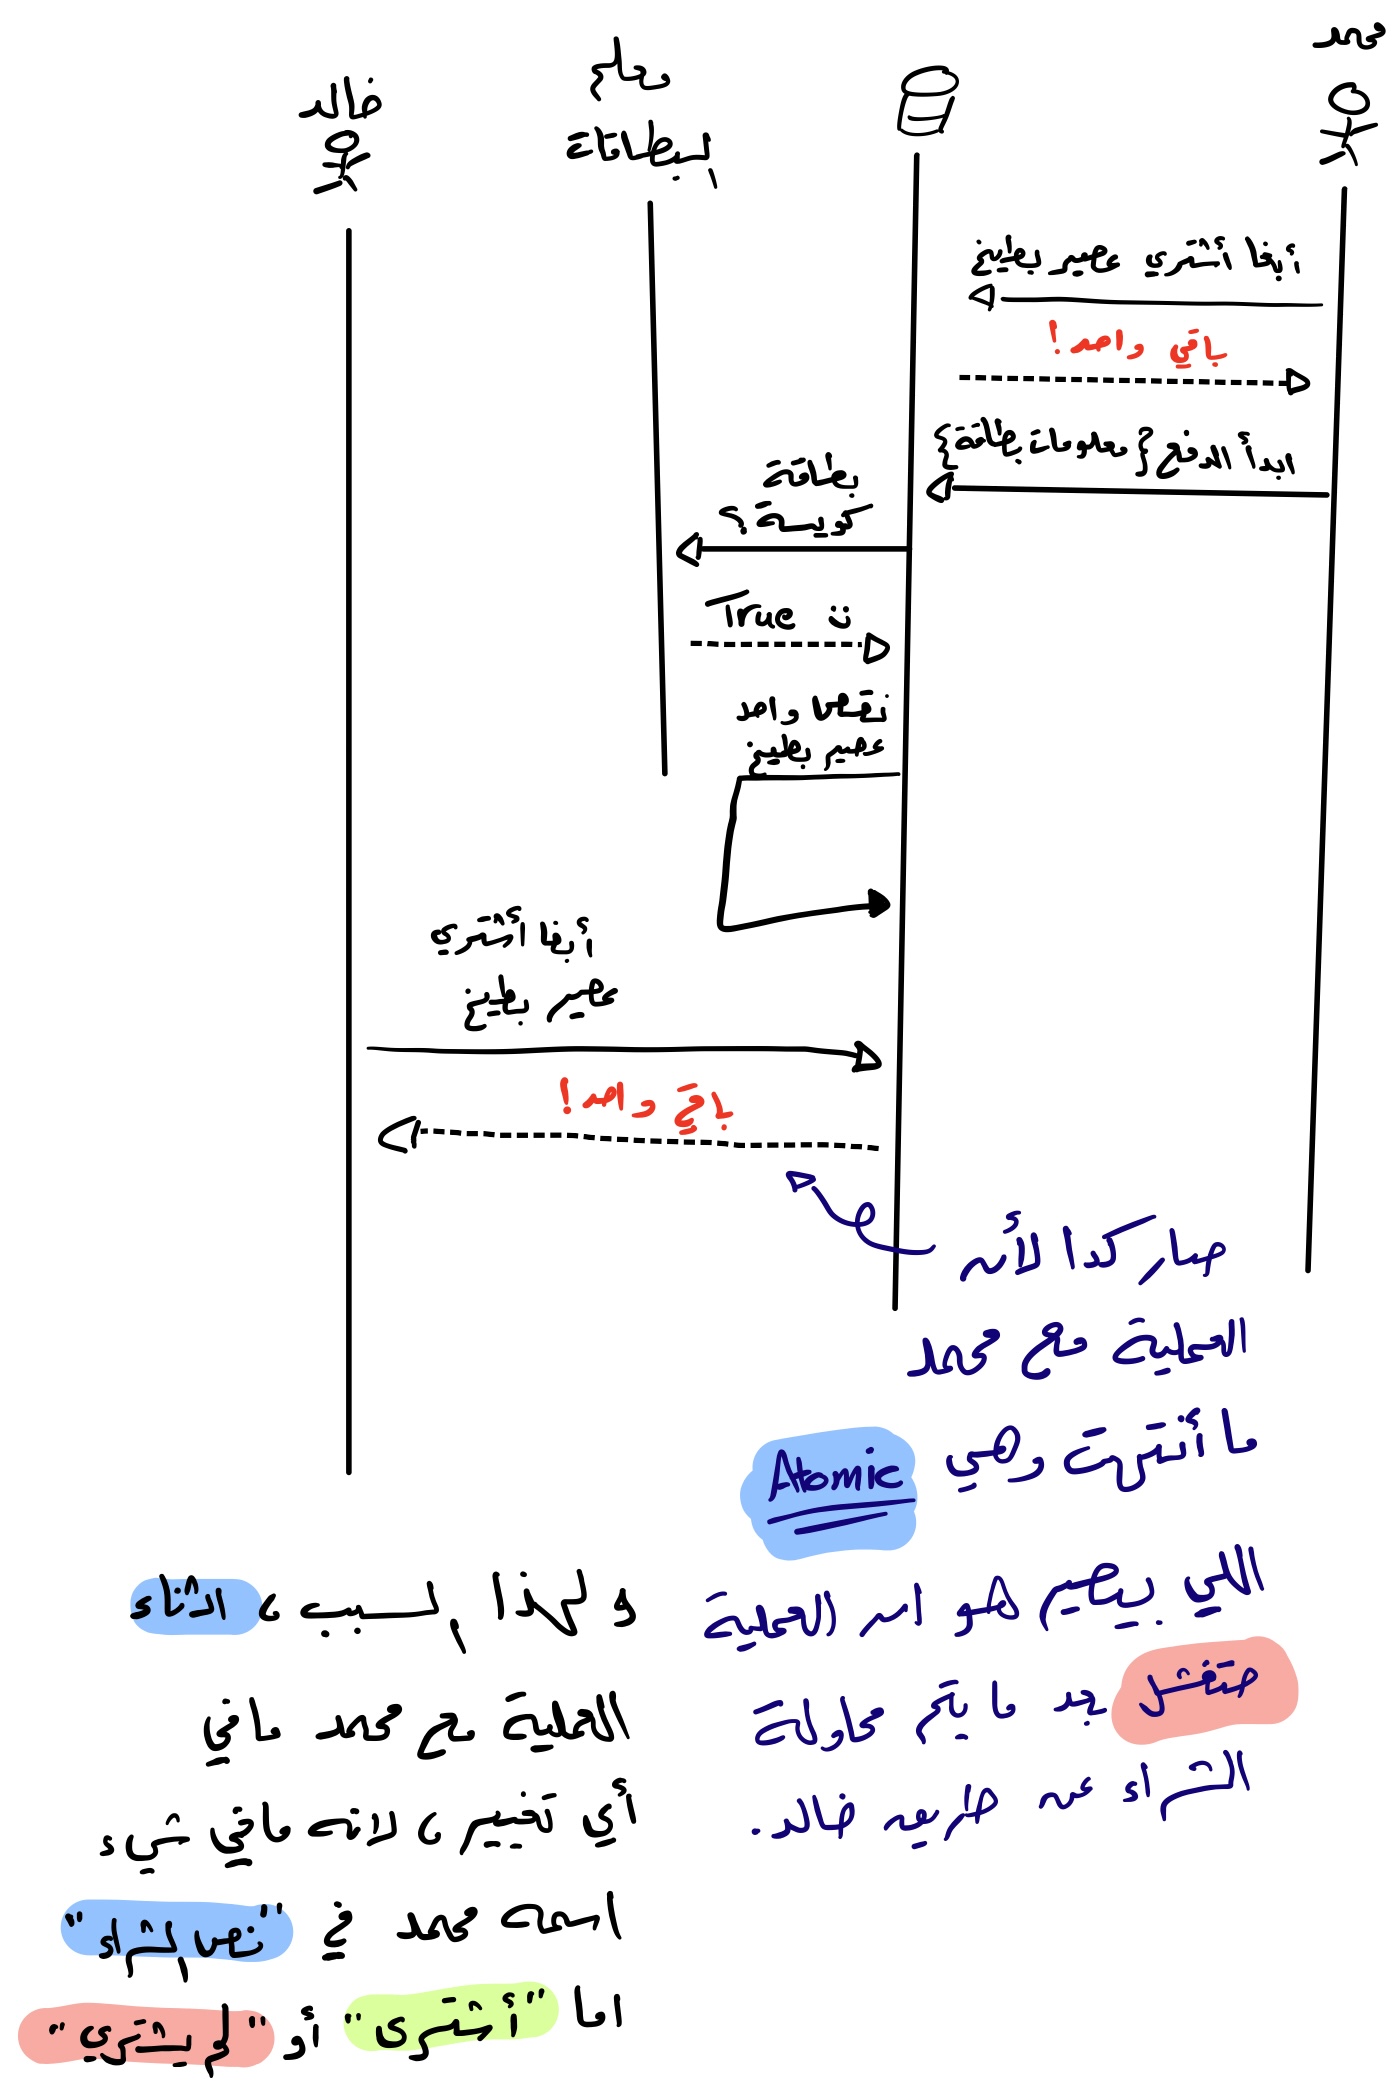 محمد
معلم
البطاقات
خالد
أبغا أشتري عصير بطيخ
باقي واحد!
ابدأ الدفع {معلومات بطاقة}
بطاقة
كويسة؟
True :)
نقص واحد
عصير بطيخ
أبغا أشتري
عصير بطيخ
باقي واحد!
صار كدا لأن
العملية مع محمد
ما أنتهت وهي Atomic
اللي بيصير هو ان العملية
حتفشل بعد ما يتم محاولة
الشراء عن طريق خالد.
ولهذا السبب، اثناء
العملية مع محمد مافي
أي تغيير، لانه مافي شيء
اسمه محمد في "نص الشراء"
اما "أشترى" أو "لم يشتري"